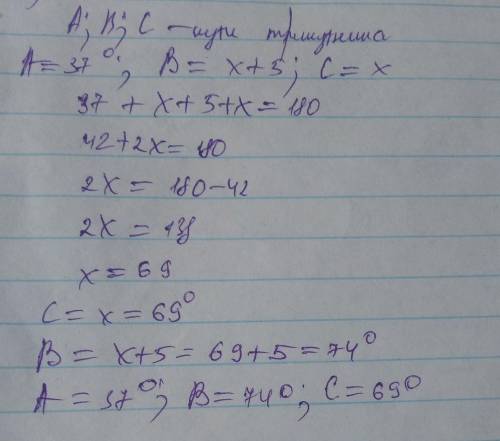 A; B; C – кути трикутника
A = 37°; B = x+5; C = x
37 + x + 5 + x = 180
42 + 2x = 180
2x = 180 – 42
2x = 138
x = 69
C = x = 69°
B = x+5 = 69+5 = 74°
A = 37°; B = 74°; C = 69°